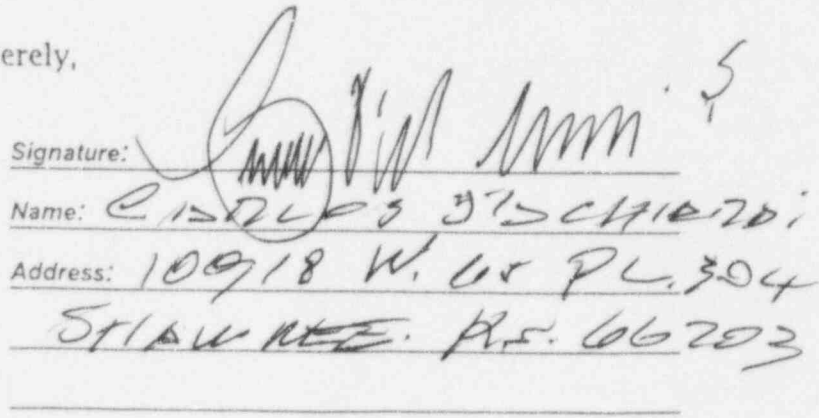 erely,
Signature:
Name: CARLOS
Address: 10918 W. 65 PL. 304
SHAWNEE. KS. 66203